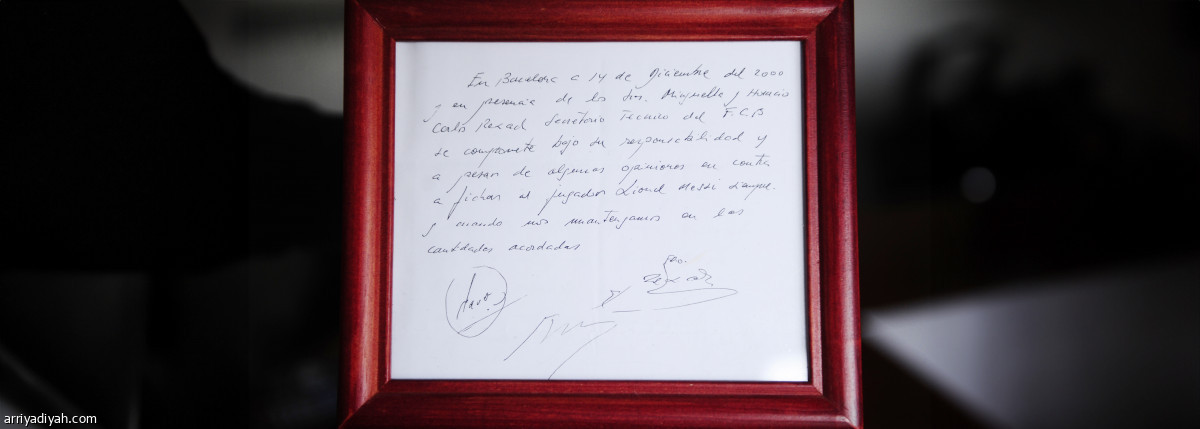 En Barcelona a 14 de Diciembre del 2000
y en presencia de los Srs. Minguella y Horacio
Carlos Rexach Secretario Tecnico del F.C.B
se compromete bajo su responsabilidad y
a pesar de algunas opiniones en contra
a fichar al jugador Lionel Messi siempre
y cuando nos mantengamos en las
cantidades acordadas
arriyadiyah.com